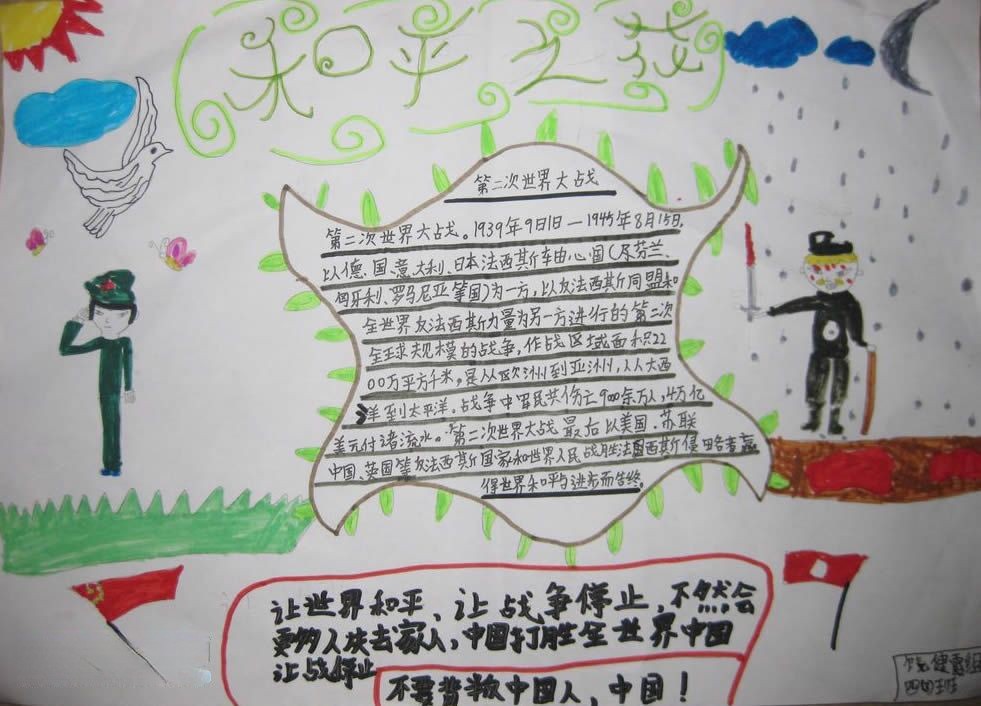 和平之花
第二次世界大战
第二次世界大战。1939年9日1日—1945年8月15日,
以德、国、意大利、日本法西斯车由心国(及芬兰、
匈牙利、罗马尼亚等国)为一方,以反法西斯同盟和
全世界反法西斯力量为另一方进行的第二次
全球规模的战争,作战区域面积22
00万平方千米,是从欧洲到亚洲,从大西
洋到太平洋。战争中军民共伤亡900余万人,4万亿
美元付诸流水。第二次世界大战最后以美国、苏联
中国、英国等反法西斯国家和世界人民战胜法西斯侵略者赢
得世界和平与进步而告终。
让世界和平、让战争停止,不然会
更多人失去家人,中国打胜全世界中国
让战停止
不要背叛中国人,中国!